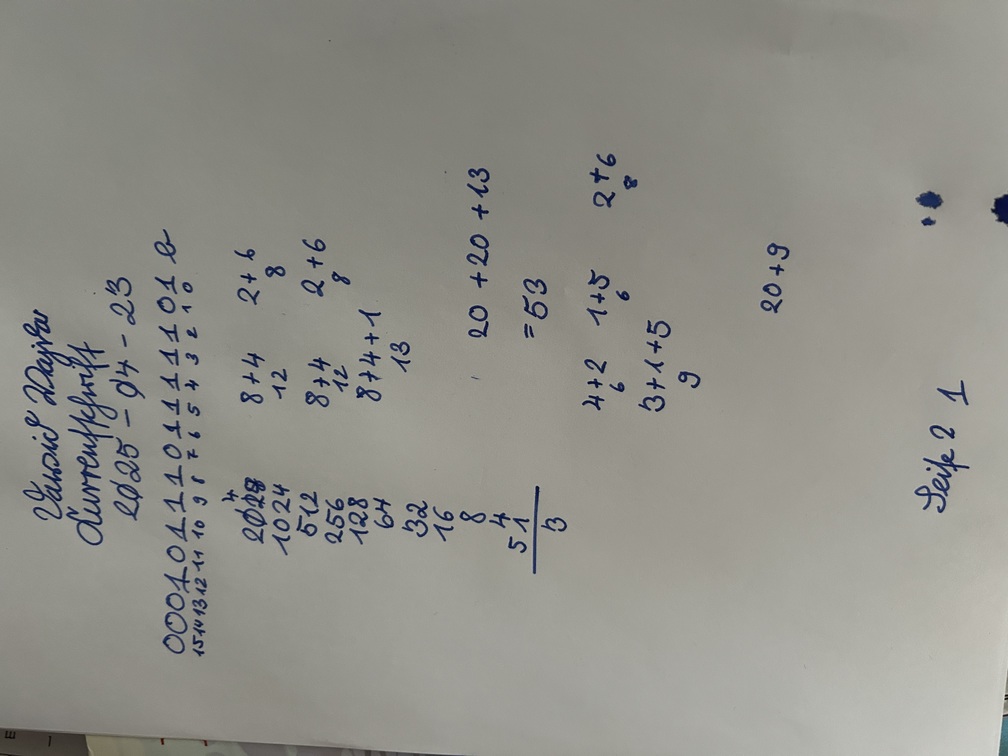 Kurrentschrift
2025-04-23
0001011110111111101 b
15 14 13 12 11 10 9 8 7 6 5 4 3 2 1 0
2048 8+4 2+6
1024 12 8
512 8+4 2+6
256 12 8
128 8+4+1
64 13
32
16
8 20+20+13
4
51 =53
3
4+2 1+5 2+6
6 6 8
3+1+5
9
20+9
Seite 2 1